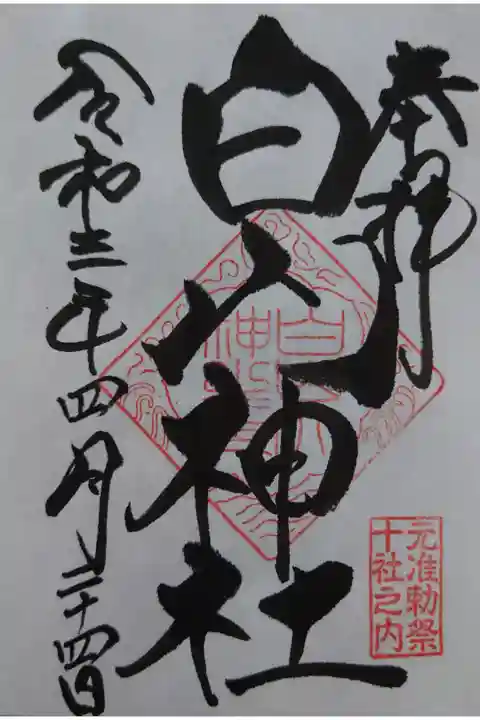 奉拝
元准勅祭
十社之内
白山神社
令和三年四月二十四日